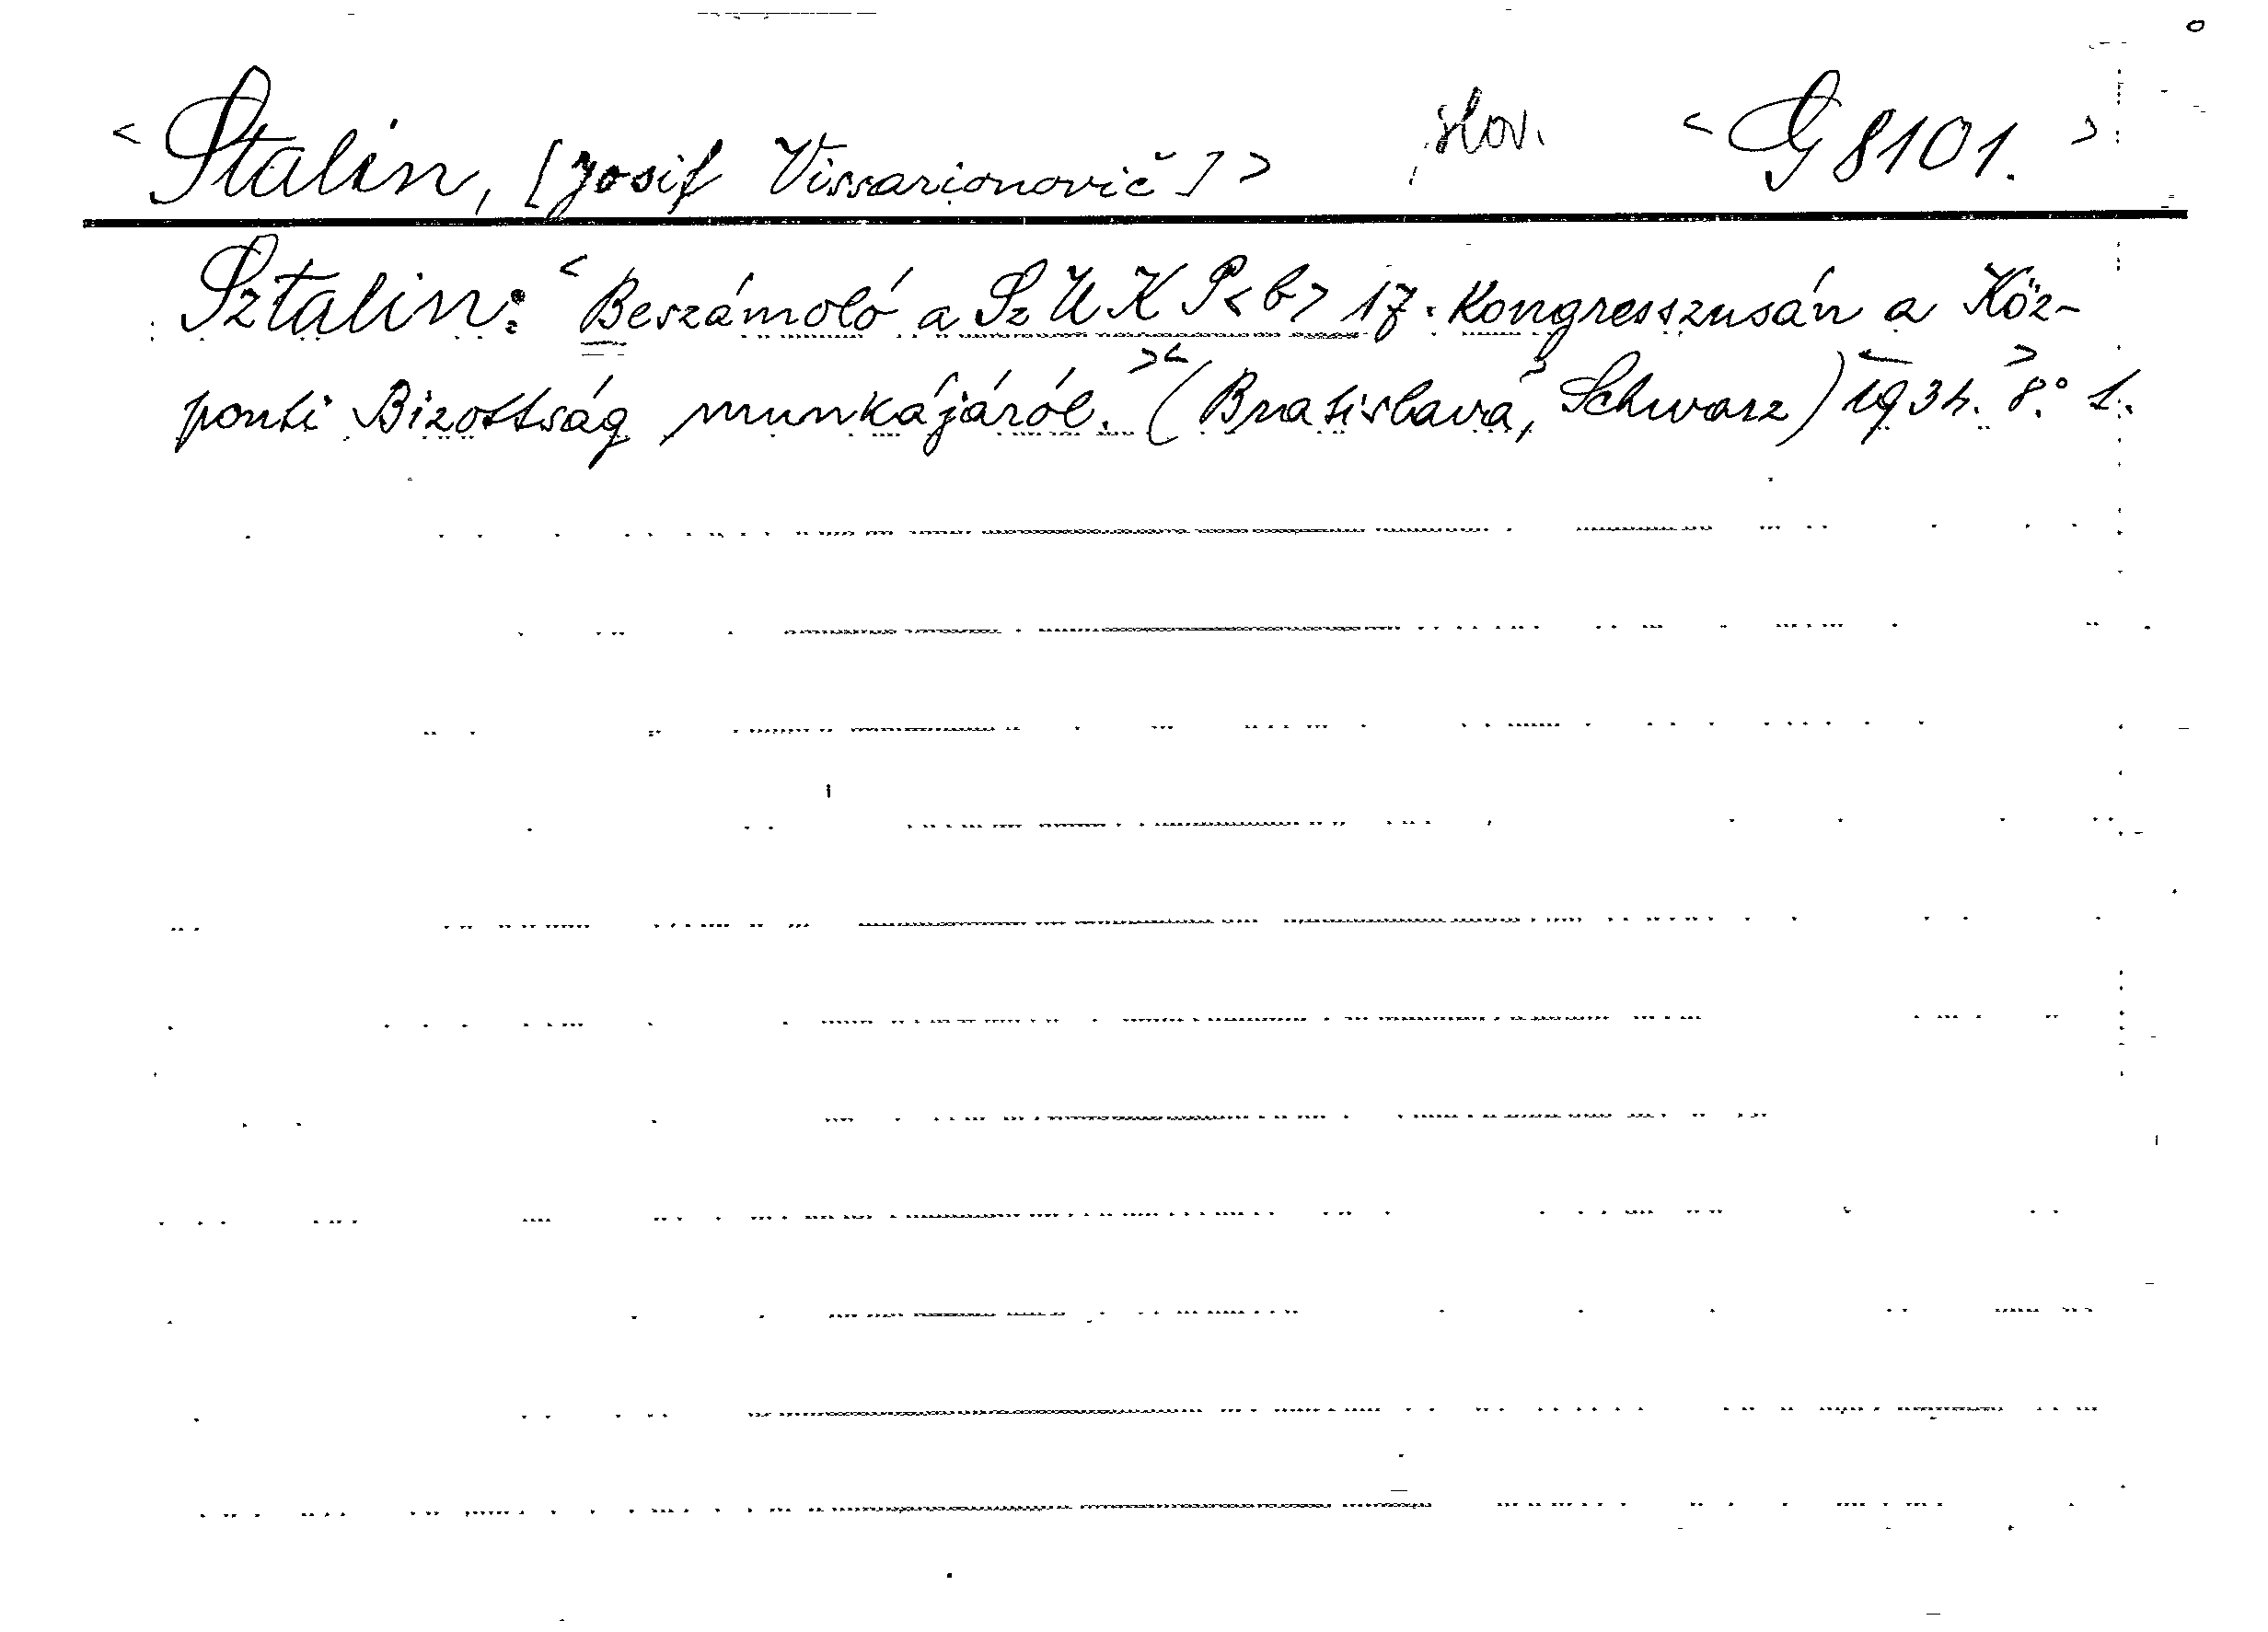 <Stalin, [Josif Vissarionovič]> slov. <G 8101.>
Sztalin: <Beszámoló a Sz U K P<b> 17. Kongresszusán a Köz-
ponti Bizottság munkájáról.> <(Bratislava, Schwarz) 1934. 8.° 1.